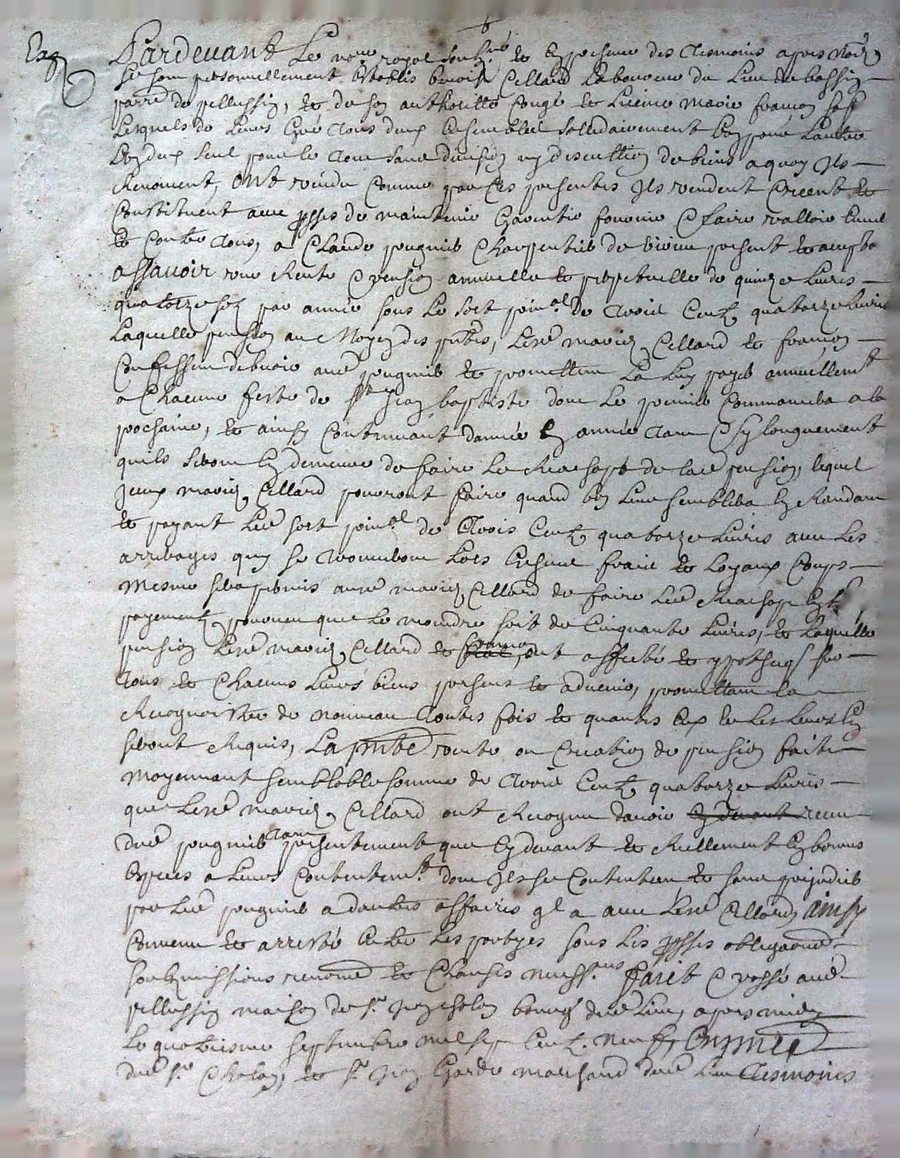 Pardevant Le no.re royal soub.né et En presence des tesmoins apres nom.es
Se sont personnellement Establis Benoist Cellard Laboureur du Lieu de bassin
parr.e de pellussin, et de son authorité Congé et Licence marie françon sa f.e
Lesquels de Leurs Gré tous deux Ensemble sollidairement Lun pour Lautre
Lun deux seul pour le tout sans division ny discution de biens a quoy Ils
Renoncent, ont vendu comme par Ces presentes Ils vendent Creent et
Constituent avec de maintenir Garentir fournir & faire valloir Envers
et Contre tous, a Claude pougnib Charpentier de present et acceptant
assavoir une Rente & pension annuelle et perpetuelle de quinze Livres
quatorze sols par année sous Le sort prin.al de trois Cent quatorze Livres
Laquelle pension au Moyen des p.ntes, Les.d mariés Cellard et françon
Confessent debvoir aud pougnib et promettent La Luy payer annuellem.t
a Chacune feste de S.t Jean baptiste dont Le premier Commancera a la
prochaine, et ainsy Continuant dannée En année tant & sy longuement
quils seront En demeure de faire Le Rachapt de lad pension, lequel
Iceux mariés Cellard pourront faire quand bon Leur semblera En Rendant
et payant Led sort prin.al de trois Cent quatorze Livres avec Les
arrerages quy se trouveront Lors Ensemble fraix et Loyaux Couts
Mesme sera permis aud mariés Cellard de faire Led Rachapt En
payement pourveu que Le moindre soit de Cinquante Livres, et Laquelle
pension Lesd mariés Cellard et françon ont affecté et ypotequé sur
tous et Chacuns Leurs biens present et advenir, promettant la
Recognoistre de nouveau toutes fois et quantes Eux et Les Leurs En
seront Requis, La p.nte vente ou Creation de pension faite
moyennant semblable somme de trois Cent quatorze Livres
que Lesd mariés Cellard ont Recognu davoir cy devant receu
dud pougnib tant presentement que cy devant et Reellement En bonnes
Especes a Leurs Contentem.t dont Ils se Contentent et sans prejudice
par Led pougnib a dautres affaires q.l a avec Lesd Cellard, ainsy
Convenu et arresté Entre Les partyes sous Les obligaons
soubmissions renon.ns et Clauses necess.res Faict & passé aud
pellussin maison de s.r Choley bourg.s dud Lieu, apres midy
Le quatriesme septembre mil sept Cent neuf
dud s.r Choley, et s.r marchand dud Lieu tesmoins